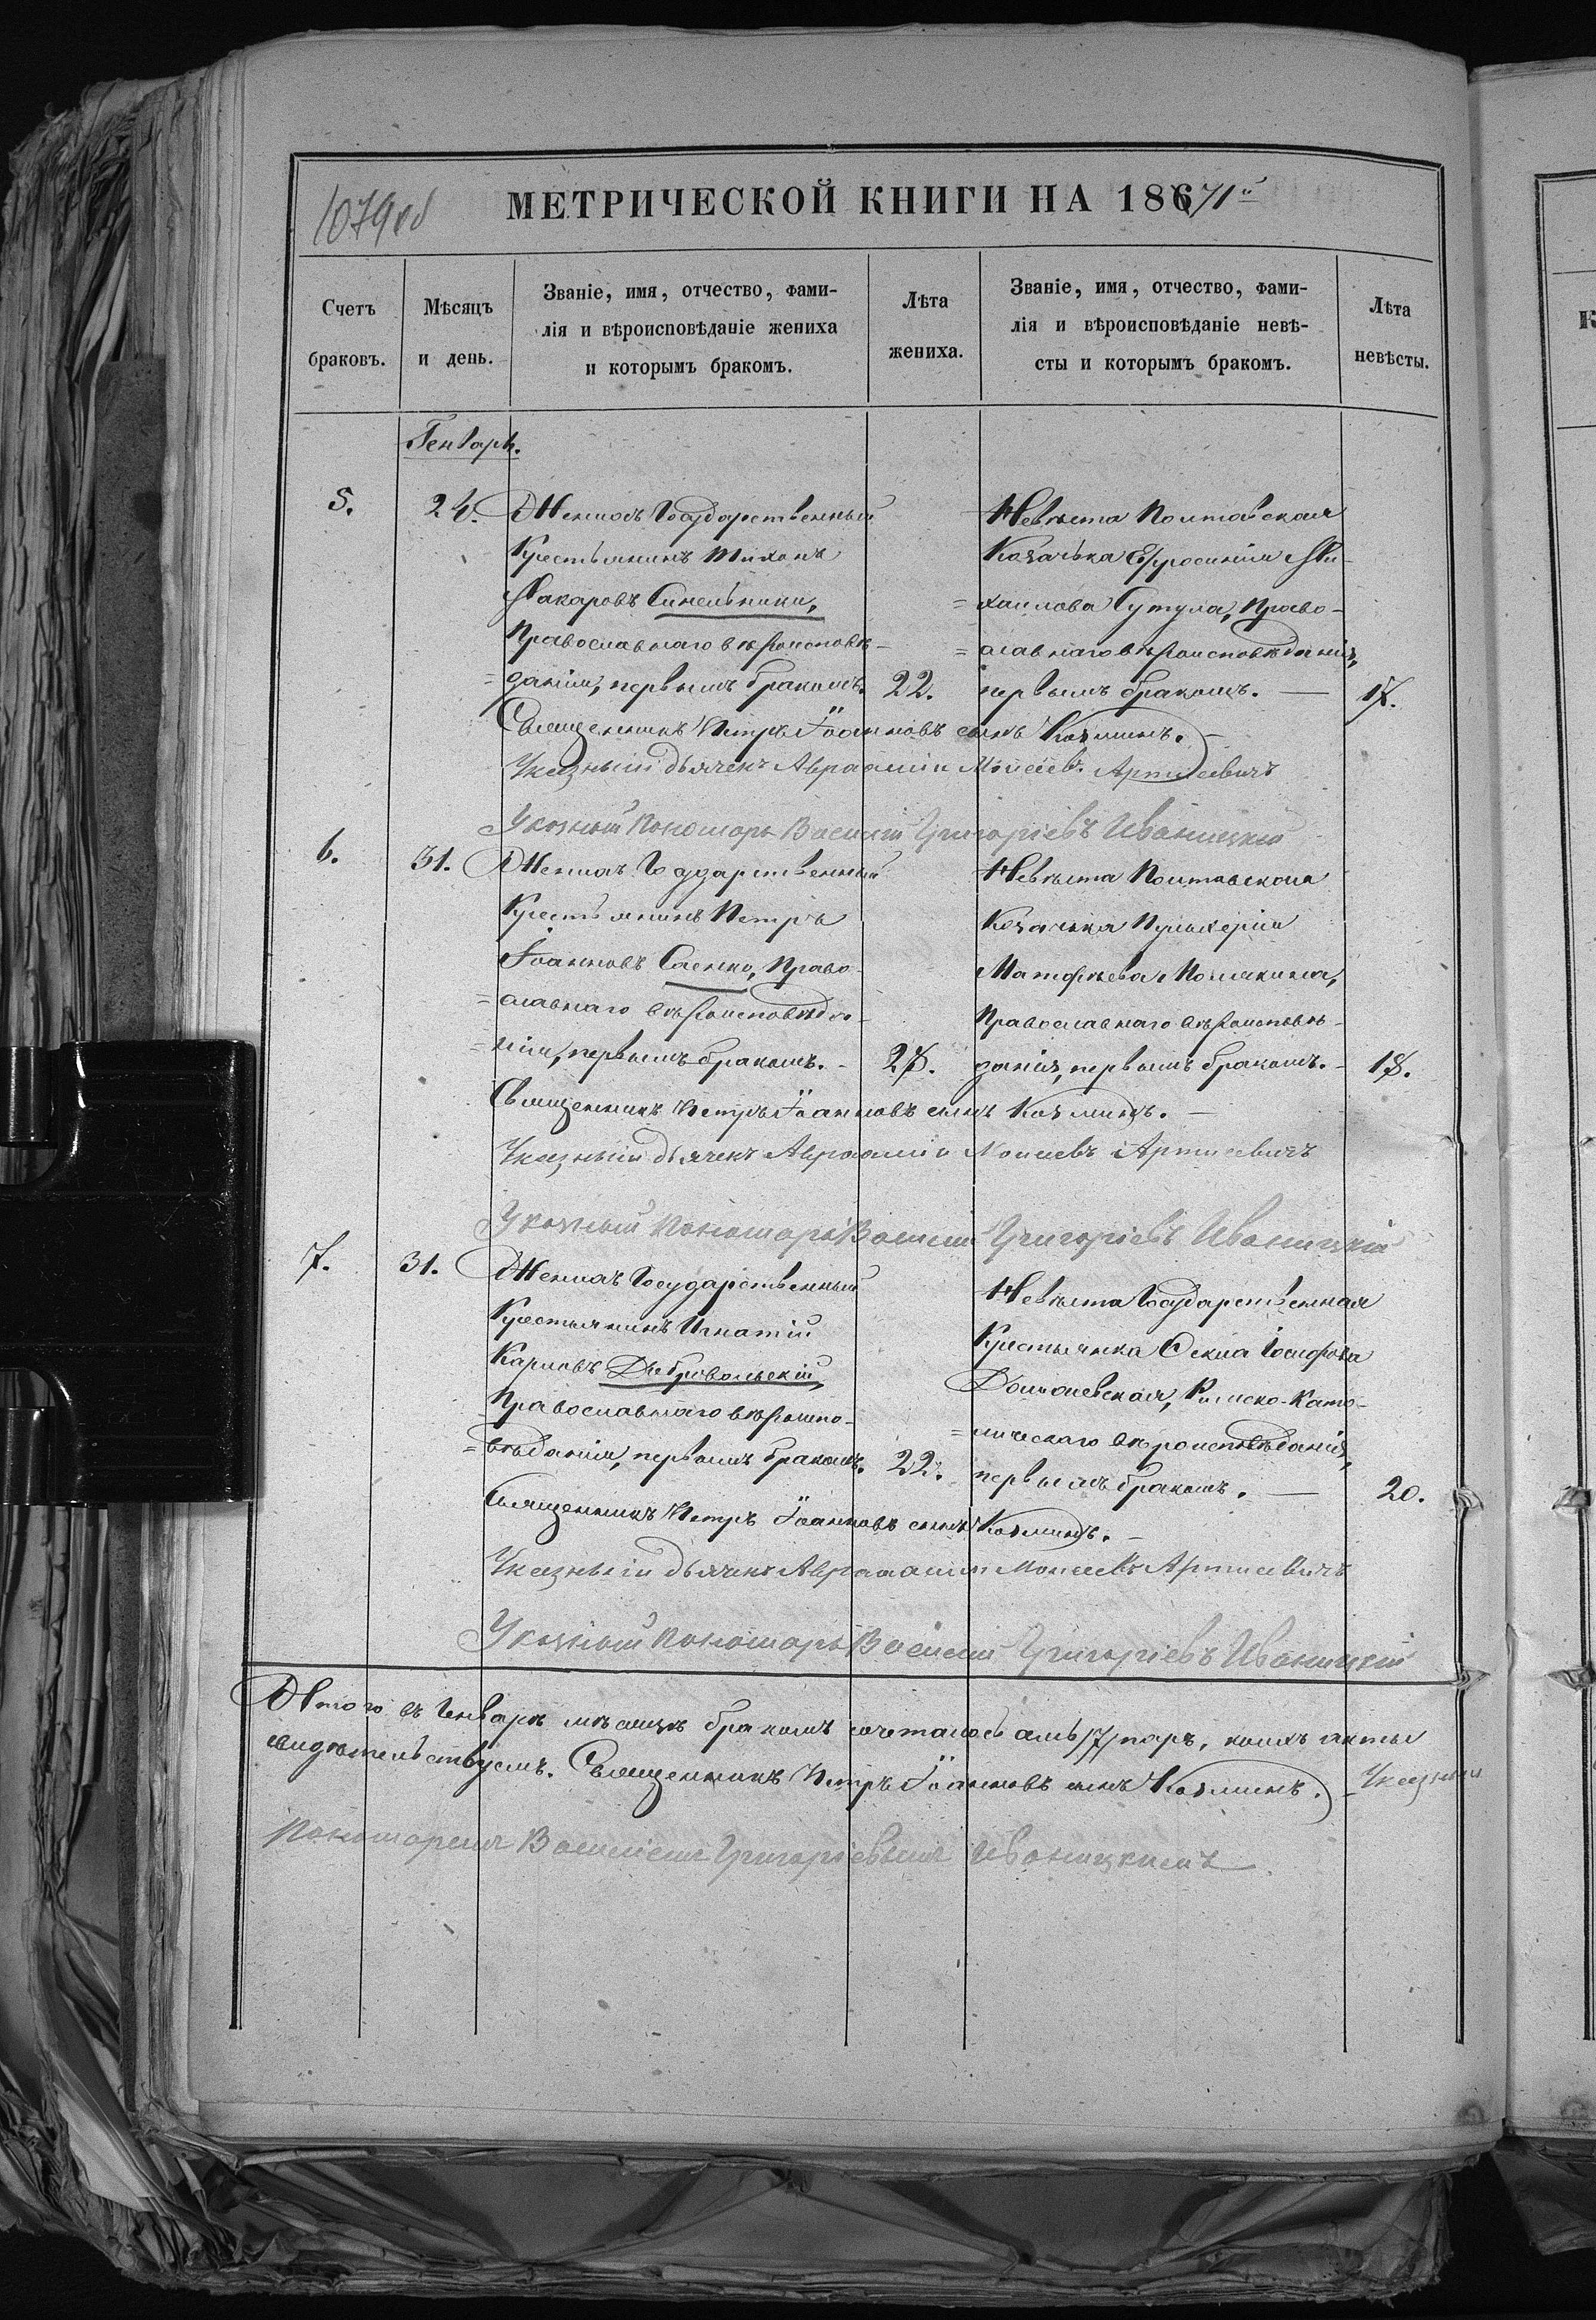 1079об
МЕТРИЧЕСКОЙ КНИГИ НА 1871й
Счетъ браковъ.
Мѣсяцъ и день.
Званіе, имя, отчество, фами-
лія и вѣроисповѣданіе жениха
и которымъ бракомъ.
Лѣта жениха.
Званіе, имя, отчество, фами-
лія и вѣроисповѣданіе невѣ-
сты и которымъ бракомъ.
Лѣта невѣсты.
Генварь.
5.
24.
Женихъ Государственный
Крестьянинъ Тихонъ
Макаровъ Синельникъ,
Православнаго вѣроисповѣ-
=данія, первымъ бракомъ.
22.
Невѣста Полтавская
Козачька Ефросинія Ми-
=хаилова Сутула, Право-
=славнаго вѣроисповѣданія,
первымъ бракомъ. —
17.
Священникъ Петръ Іоанновъ сынъ Козминъ. —
Указный дьячекъ Авраамій Моисеевъ Артисевичъ
Указный Пономарь Василій Григоріевъ Иваницкій
6.
31.
Женихъ Государственный
Крестьянинъ Петръ
Іоанновъ Саенко, Право-
=славнаго вѣроисповѣда-
=нія, первымъ бракомъ. -
28.
Невѣста Полтавская
Козачька Пульхерія
Матфѣева
Православнаго вѣроисповѣ-
данія, первымъ бракомъ. -
18.
Священникъ Петръ Іоанновъ сынъ Козминъ. —
Указный дьячекъ Авраамій Моисеевъ Артисевичъ
Указный Пономарь Василій Григоріевъ Иваницкій
7.
31.
Женихъ Государственный
Крестьянинъ Игнатій
Карповъ Домбровольскій,
Православнаго вѣроиспо-
=вѣданія, первымъ бракомъ.
22.
Невѣста Государственная
Крестьянка Іосифова
Римско-Като-
=лическаго вѣроисповѣданія,
первымъ бракомъ. —
20.
Священникъ Петръ Іоанновъ сынъ Козминъ. —
Указный дьячекъ Авраамій Моисеевъ Артисевичъ
Указный Пономарь Василій Григоріевъ Иваницкій
Итого въ Генварѣ мѣсяцѣ бракомъ сочеталось семь /7/ паръ, коихъ акты
свидѣтельствуемъ. Священникъ Петръ Іоанновъ сынъ Козминъ. Указный
Пономаремъ Василіемъ Григоріевымъ Иваницкимъ.